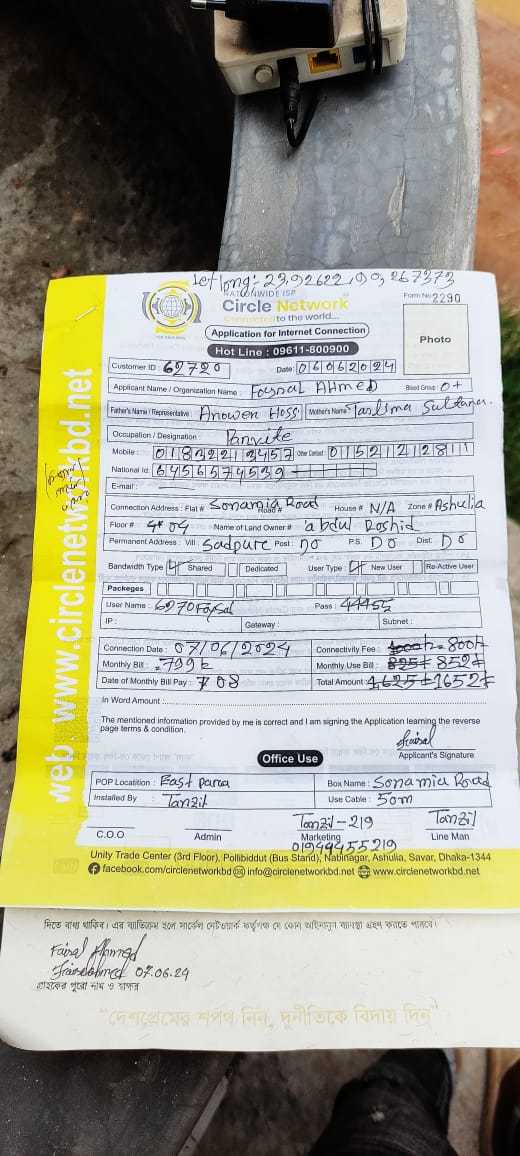 Let long:- 23.92622, 93,267373
NATIONWIDE ISP
Circle Network
Connected to the world...
Form No 2290
Application for Internet Connection
Hot Line : 09611-800900
Photo
Customer ID : 62720 Date: 06062024
Applicant Name / Organization Name : Foysal AHmed Blood Group : O+
Father's Name / Representative : Anower Hoss Mother's Name Taslima Sultana.
Occupation / Designation : Panvite
Mobile : 01832213457 Other Contact: 01521212811
National Id: 6456574539
E-mail :
Connection Address : Flat # Sonamia Road Road # House # N/A Zone # Ashulia
Floor # 4# 04 Name of Land Owner # abdul Roshid
Permanent Address : Vill : Sadpure Post : DO P.S. DO Dist: DO
Bandwidth Type Shared Dedicated User Type : New User Re-Active User
Packeges
User Name : 6270Foysal Pass : 44455
IP : Gateway : Subnet :
Connection Date : 07/06/2024 Connectivity Fee : 1000/= 800/-
Monthly Bill : 799 Monthly Use Bill : 825 852
Date of Monthly Bill Pay : 7 08 Total Amount : 1,625 1652
In Word Amount :
The mentioned information provided by me is correct and I am signing the Application learning the reverse
page terms & condition.
Faisal
Applicant's Signature
Office Use
POP Locatition : East Parca Box Name : Sonamia Road
Installed By : Tanzil Use Cable : 50m
Tanzil-219 Tanzil
C.O.O Admin Marketing Line Man
01949455219
Unity Trade Center (3rd Floor), Pollibiddut (Bus Stand), Nabinagar, Ashulia, Savar, Dhaka-1344
facebook.com/circlenetworkbd info@circlenetworkbd.net www.circlenetworkbd.net
web: www.circlenetworkbd.net
দিতে বাধ্য থাকিব। এর ব্যতিক্রম হলে সার্কেল নেটওয়ার্ক কর্তৃপক্ষ যে কোন আইনানুগ ব্যবস্থা গ্রহণ করতে পারবে।
Faisal Ahmed
Faisal Ahmed 07.06.24
গ্রাহকের পুরো নাম ও স্বাক্ষর
"দেশপ্রেমের শপথ নিন, দুর্নীতিকে বিদায় দিন"